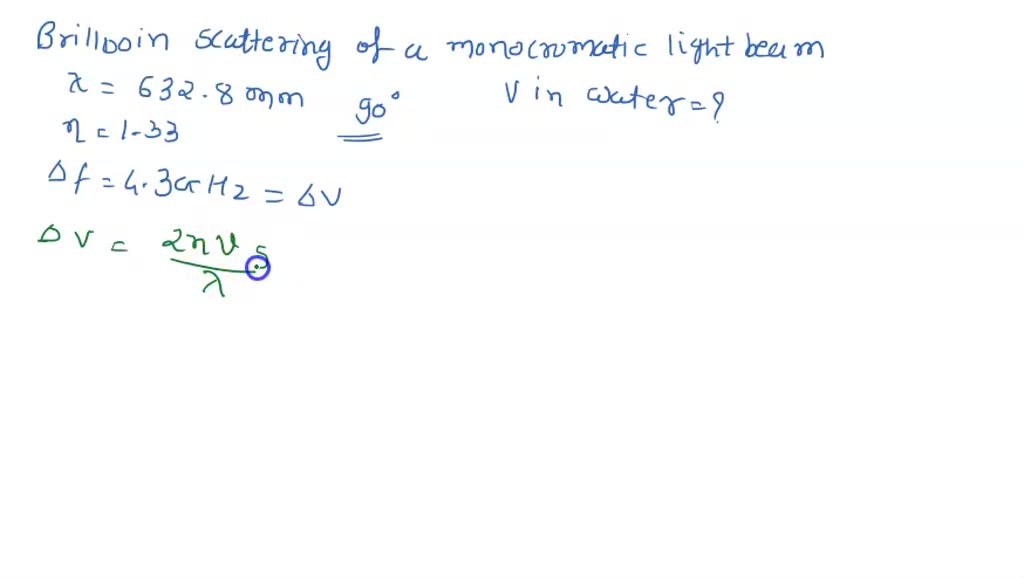 Brillooin scattering of a monocromatic light beam
λ = 632.8 nm 90° V in water = ?
η = 1.33
Δf = 4.3 GHz = Δν
Δν = 2ηυ s / λ